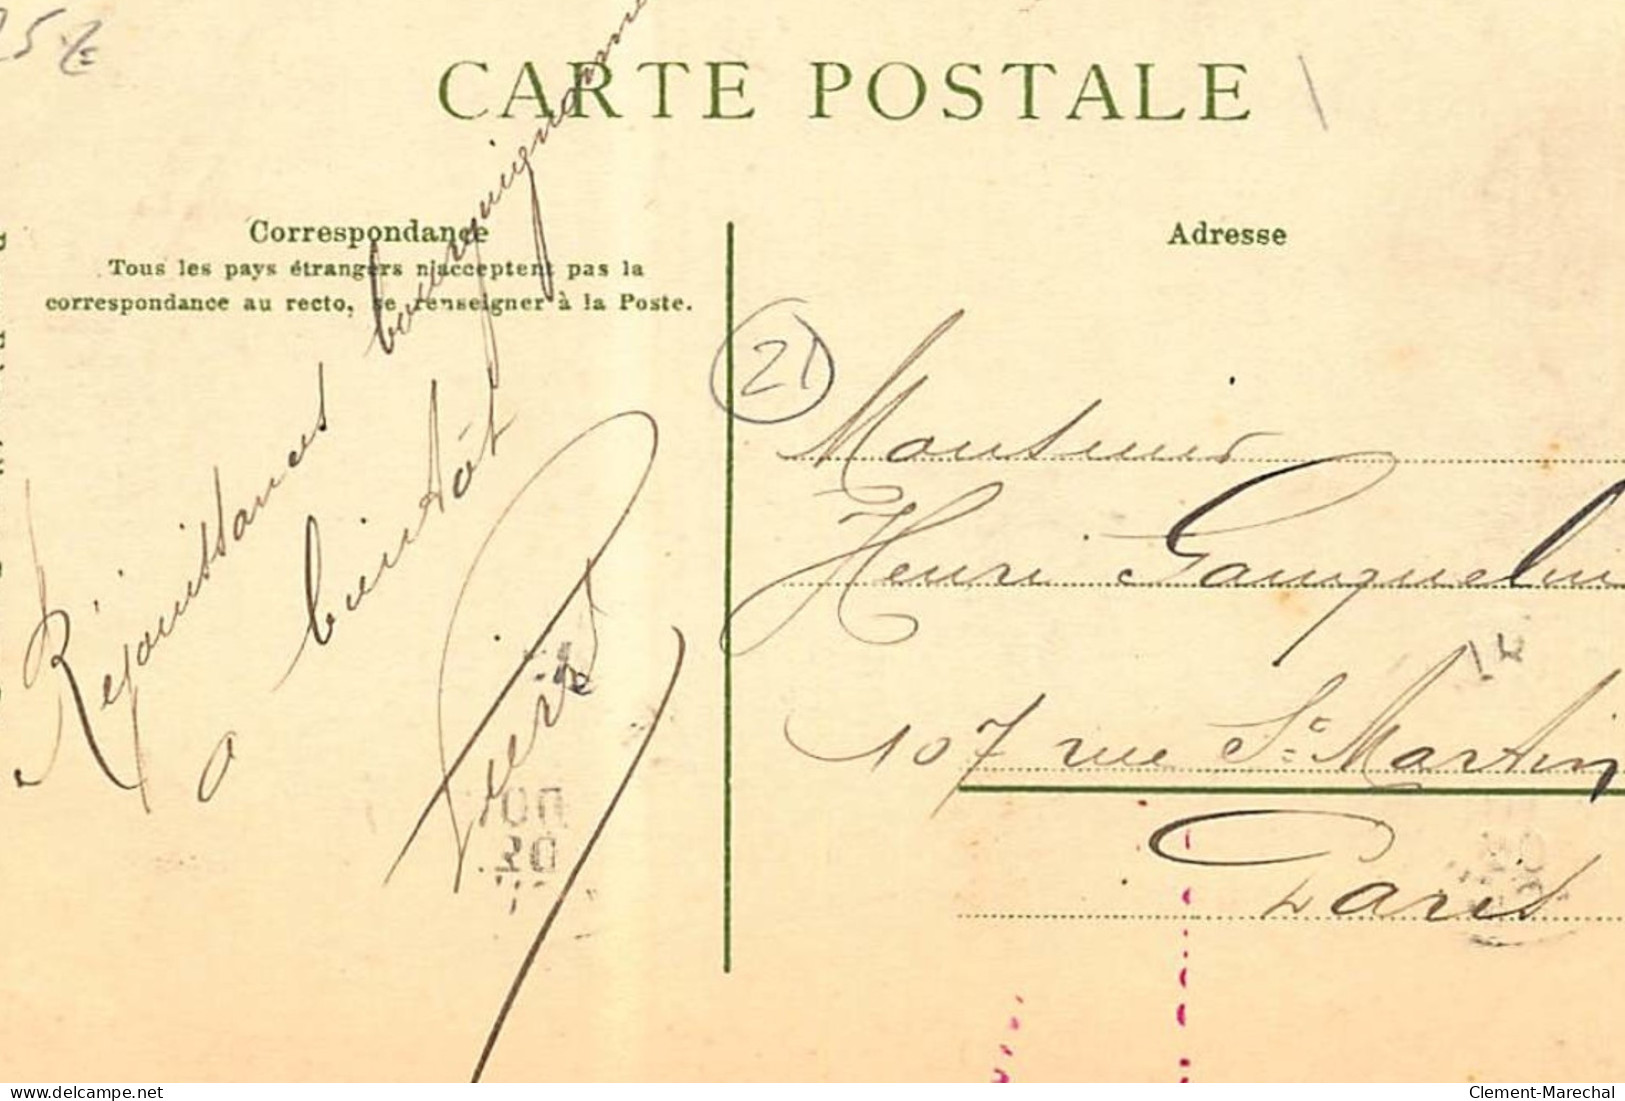 25
CARTE POSTALE
Correspondance
Tous les pays étrangers n'acceptent pas la
correspondance au recto, se renseigner à la Poste.
Réjouissances bourguignonne
a bientôt
Pierre
Adresse
21
Monsieur
Henri
107 rue St Martin
Paris
delcampe.net
Clement-Marechal